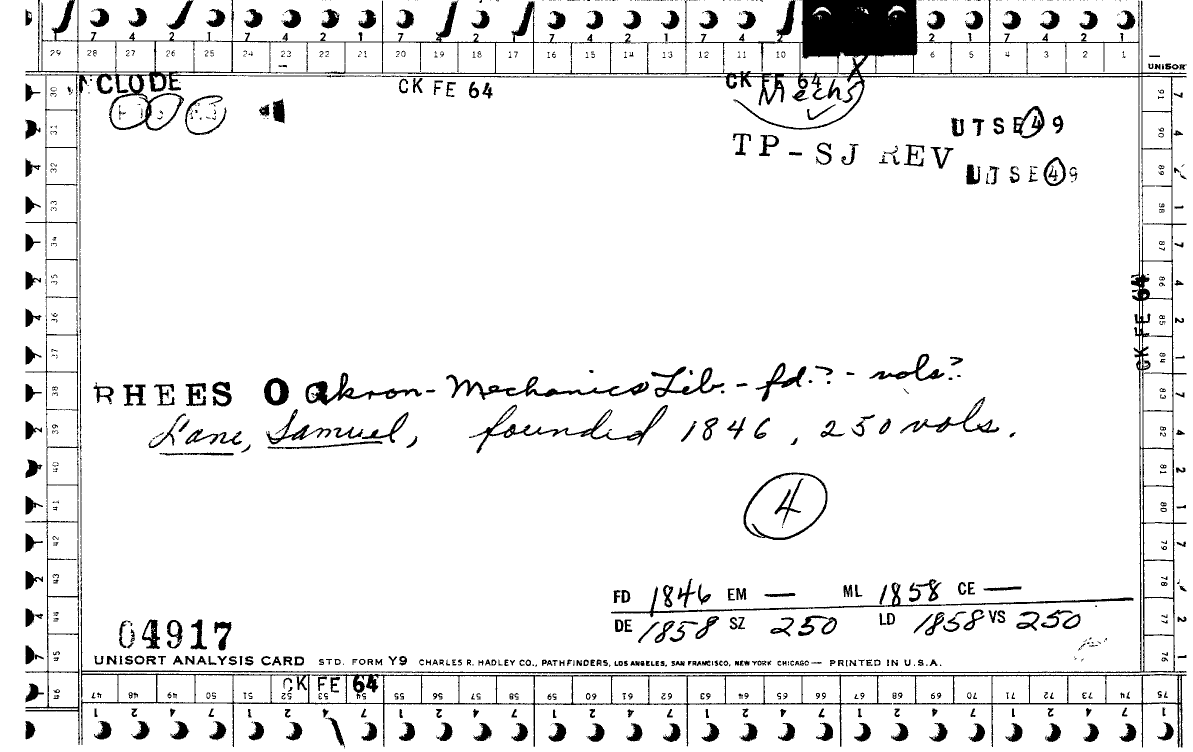 7 4 2 1 7 4 2 1 7 4 2 1 7 4 2 1 7 4 2 2 1 7 4 2 1
29 28 27 26 25 24 23 22 21 20 19 18 17 16 15 14 13 12 11 10 6 5 4 3 2 1
UNISORT
CLUDE CK FE 64 CK FE 64
Mechs
UTSE49
TP-SJ REV
UTSE49
CK FE 64
RHEES O Akron - Mechanics Lib. - fd.? - vols?
Lane, Samuel, founded 1846, 250 vols.
4
FD 1846 EM — ML 1858 CE —
DE 1858 SZ 250 LD 1858 VS 250
04917
UNISORT ANALYSIS CARD STD. FORM Y9 CHARLES R. HADLEY CO., PATHFINDERS, LOS ANGELES, SAN FRANCISCO, NEW YORK CHICAGO — PRINTED IN U.S.A.
CK FE 64
30 31 32 33 34 35 36 37 38 39 40 41 42 43 44 45 46
91 90 89 88 87 86 85 84 83 82 81 80 79 78 77 76
47 48 49 50 51 52 53 54 55 56 57 58 59 60 61 62 63 64 65 66 67 68 69 70 71 72 73 74 75
1 2 4 7 1 2 4 7 1 2 4 7 1 2 4 7 1 2 4 7 1 2 4 7 1 2 4 7 1